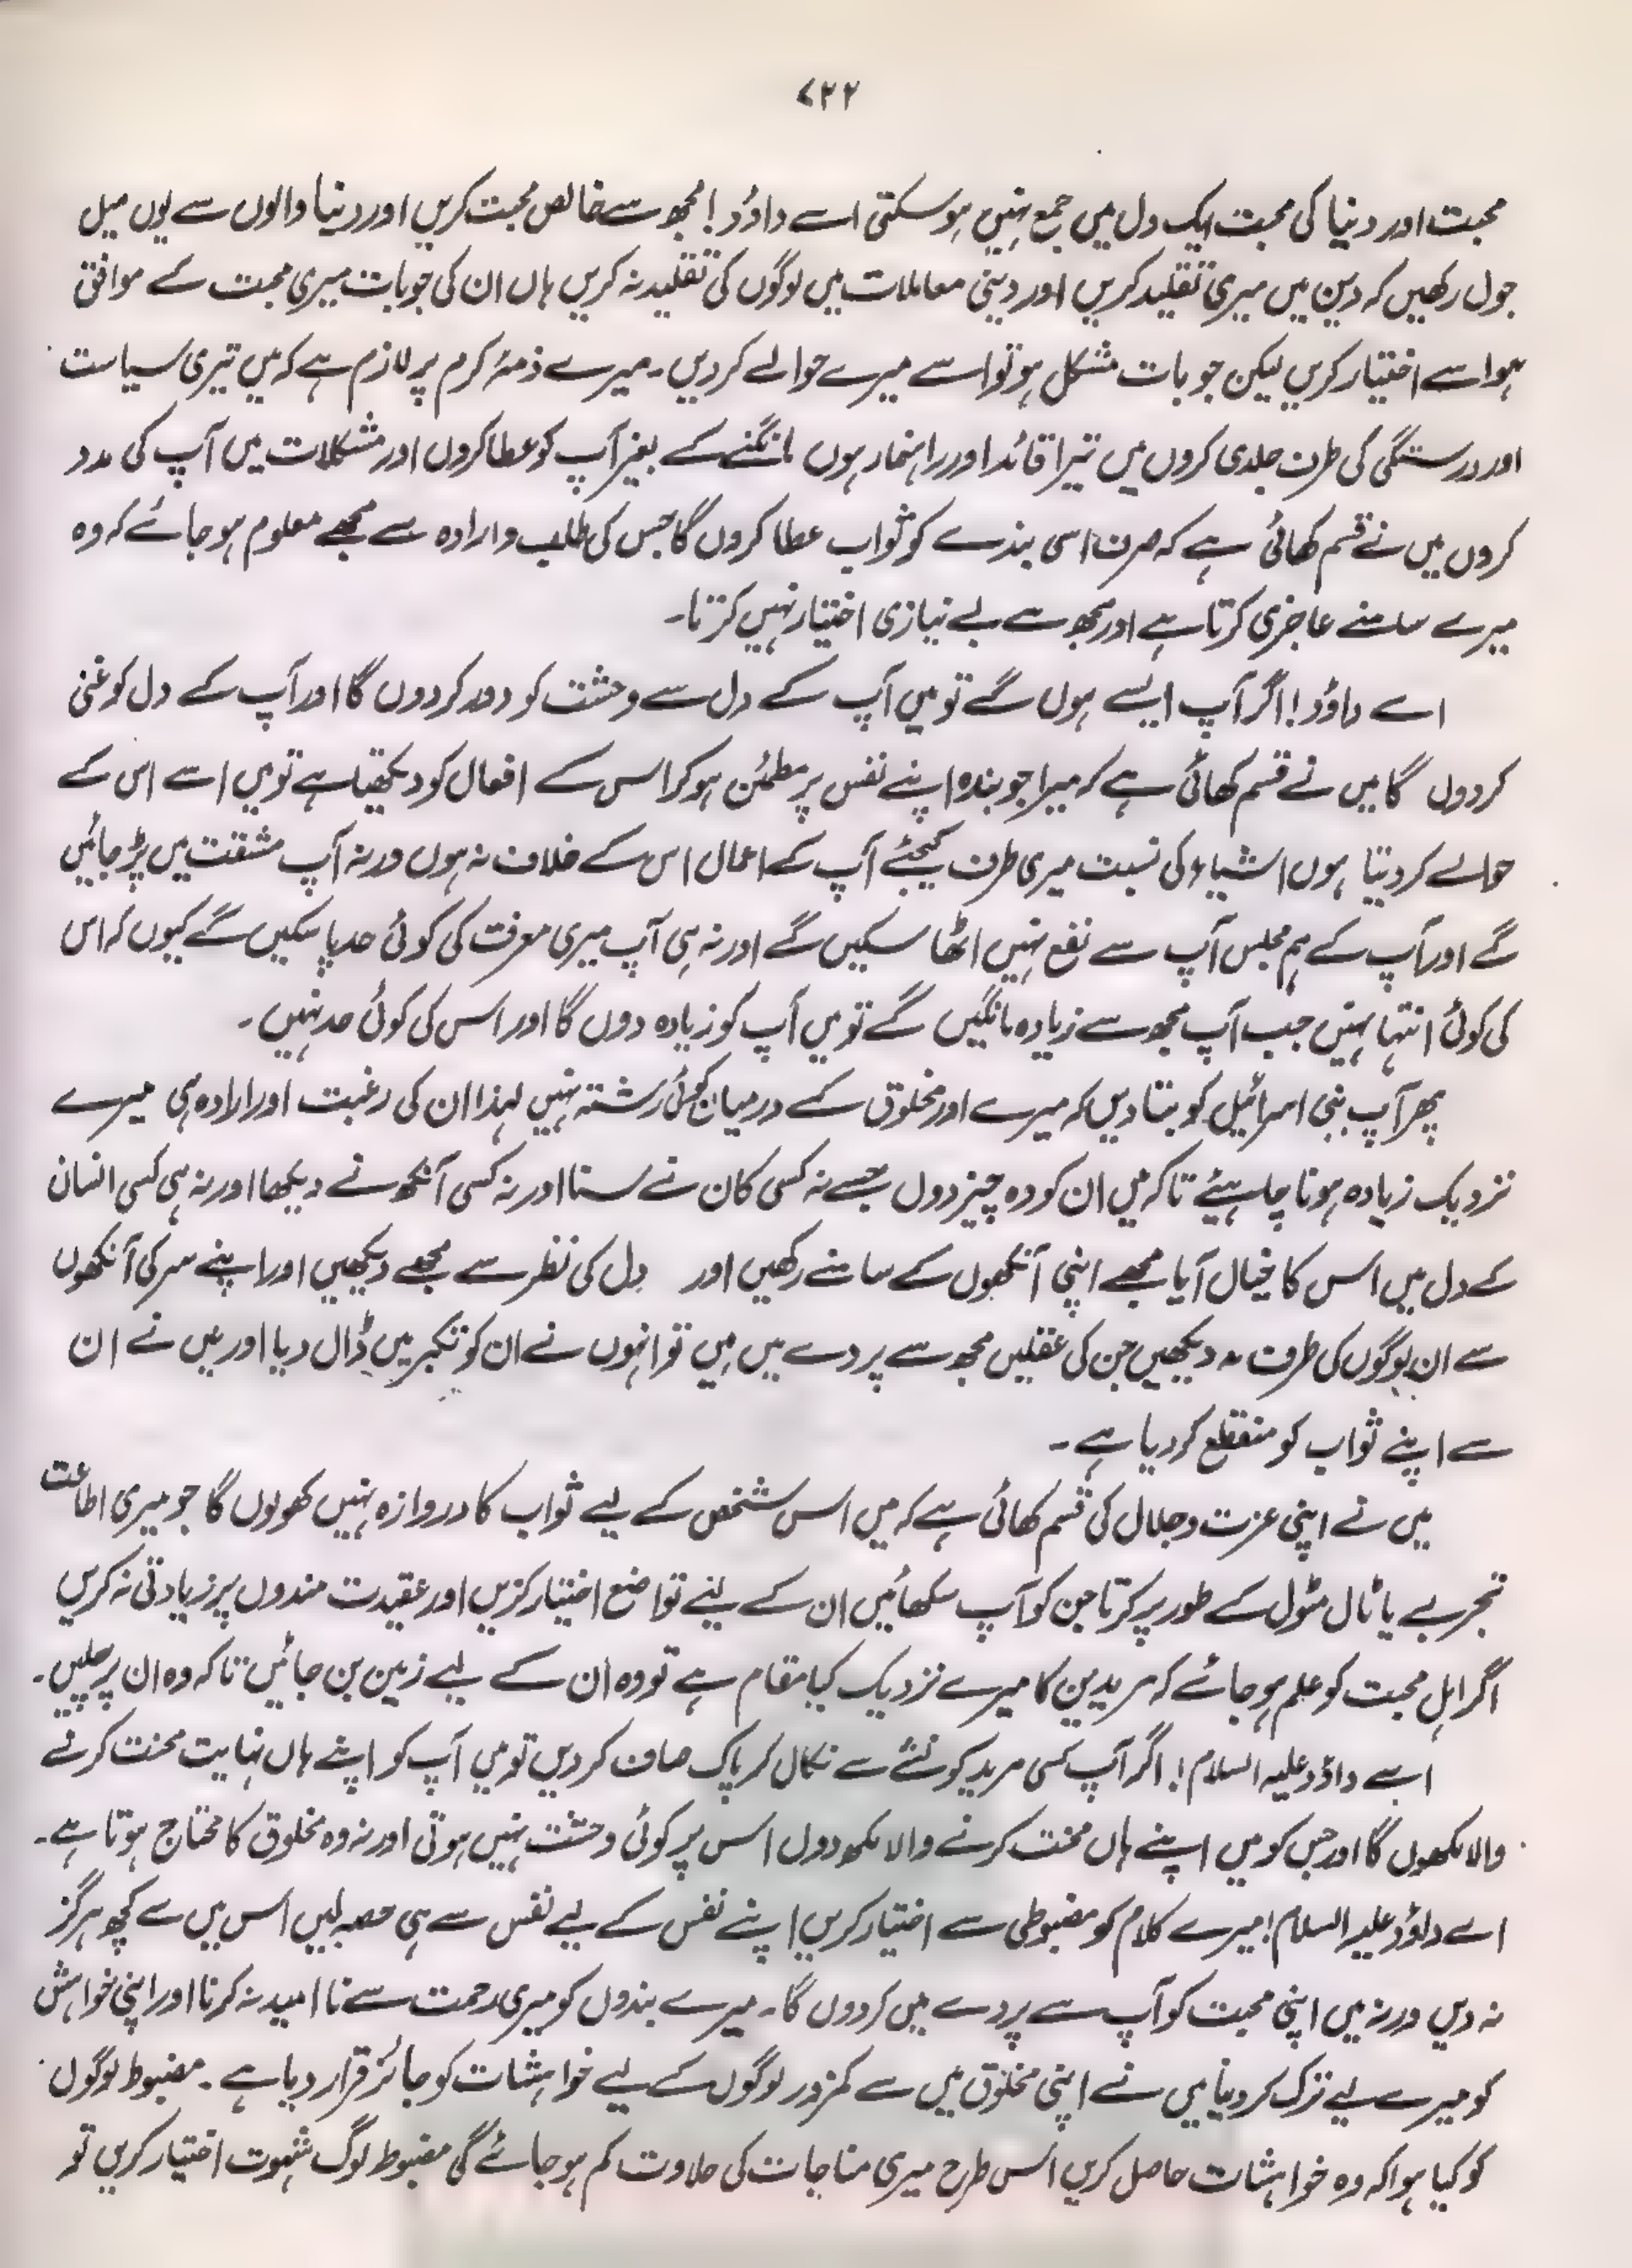 ۷۲۲
محبت اور دنیا کی محبت ایک دل میں جمع نہیں ہو سکتی اے داؤد! مجھ سے خالص محبت کریں اور دنیا والوں سے یوں میل
جول رکھیں کہ دین میں میری تقلید کریں اور دینی معاملات میں لوگوں کی تقلید نہ کریں ہاں ان کی جو بات میری محبت کے موافق
ہو اسے اختیار کریں لیکن جو بات مشکل ہو تو اسے میرے حوالے کر دیں۔ میرے ذمۂ کرم پر لازم ہے کہ میں تیری سیاست
اور درستگی کی طرف جلدی کروں میں تیرا قائد اور راہنما ر ہوں مانگنے کے بغیر آپ کو عطا کروں اور مشکلات میں آپ کی مدد
کروں میں نے قسم کھائی ہے کہ صرف اسی بندے کو ثواب عطا کروں گا جس کی طلب و ارادہ سے مجھے معلوم ہو جائے کہ وہ
میرے سامنے عاجزی کرتا ہے اور مجھ سے بے نیازی اختیار نہیں کرتا۔
اے داؤد! اگر آپ ایسے ہوں گے تو میں آپ کے دل سے وحشت کو دور کر دوں گا اور آپ کے دل کو غنی
کر دوں گا میں نے قسم کھائی ہے کہ میرا جو بندہ اپنے نفس پر مطمئن ہو کر اس کے افعال کو دیکھتا ہے تو میں اسے اس کے
حوالے کر دیتا ہوں اشیاء کی نسبت میری طرف کیجئے آپ کے اعمال اس کے خلاف نہ ہوں ورنہ آپ مشقت میں پڑ جائیں
گے اور آپ کے ہم مجلس آپ سے نفع نہیں اٹھا سکیں گے اور نہ ہی آپ میری معرفت کی کوئی حد پا سکیں گے کیوں کہ اس
کی کوئی انتہا نہیں جب آپ مجھ سے زیادہ مانگیں گے تو میں آپ کو زیادہ دوں گا اور اس کی کوئی حد نہیں۔
پھر آپ بنی اسرائیل کو بتا دیں کہ میرے اور مخلوق کے درمیان کوئی رشتہ نہیں لہذا ان کی رغبت اور ارادہ ہی میرے
نزدیک زیادہ ہونا چاہیئے تاکہ میں ان کو وہ چیز دوں جسے نہ کسی کان نے سنا اور نہ کسی آنکھ نے دیکھا اور نہ ہی کسی انسان
کے دل میں اس کا خیال آیا مجھے اپنی آنکھوں کے سامنے رکھیں اور دل کی نظر سے مجھے دیکھیں اور اپنے سر کی آنکھوں
سے ان لوگوں کی طرف نہ دیکھیں جن کی عقلیں مجھ سے پردے میں ہیں تو انہوں نے ان کو تکبر میں ڈال دیا اور میں نے ان
سے اپنے ثواب کو منقطع کر دیا ہے۔
میں نے اپنی عزت و جلال کی قسم کھائی ہے کہ میں اس شخص کے لیے ثواب کا دروازہ نہیں کھولوں گا جو میری اطاعت
تجربے یا ٹال مٹول کے طور پر کرتا جن کو آپ سکھائیں ان کے لئے تواضع اختیار کریں اور عقیدت مندوں پر زیادتی نہ کریں
اگر اہل محبت کو علم ہو جائے کہ مریدین کا میرے نزدیک کیا مقام ہے تو وہ ان کے لیے زمین بن جائیں تاکہ وہ ان پر چلیں۔
اے داؤد علیہ السلام! اگر آپ کسی مرید کو نشے سے نکال کر پاک صاف کر دیں تو میں آپ کو اپنے ہاں نہایت محنت کرنے
والا لکھوں گا اور جس کو میں اپنے ہاں محنت کرنے والا لکھ دوں اس پر کوئی وحشت نہیں ہوتی اور نہ وہ مخلوق کا محتاج ہوتا ہے۔
اے داؤد علیہ السلام! میرے کلام کو مضبوطی سے اختیار کریں اپنے نفس کے لیے نفس سے ہی حصہ لیں اس میں سے کچھ ہرگز
نہ دیں ورنہ میں اپنی محبت کو آپ سے پردے میں کر دوں گا۔ میرے بندوں کو میری رحمت سے نا امید نہ کرنا اور اپنی خواہش
کو میرے لیے ترک کر دینا میں نے اپنی مخلوق میں سے کمزور لوگوں کے لیے خواہشات کو جائز قرار دیا ہے۔ مضبوط لوگوں
کو کیا ہوا کہ وہ خواہشات حاصل کریں اس طرح میری مناجات کی حلاوت کم ہو جائے گی مضبوط لوگ شہوت اختیار کریں تو